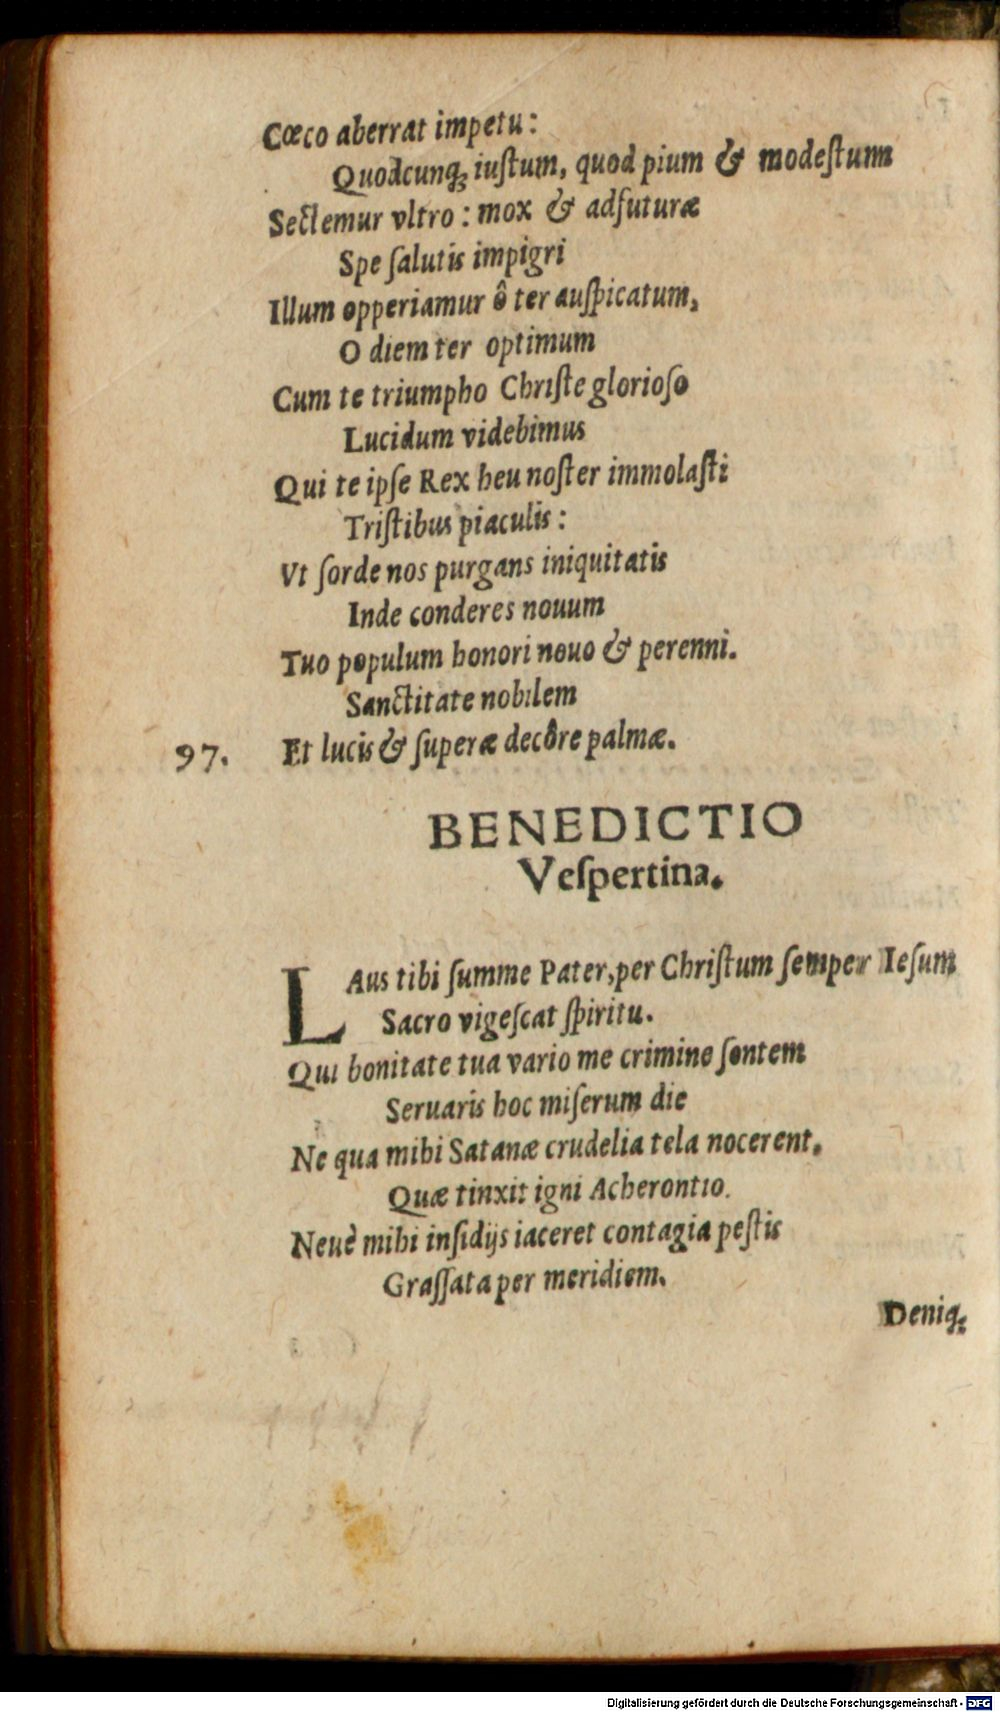 Cœco aberrat impetu:
Quodcunq; iuſtum, quod pium & modeſtum
Sectemur vltro: mox & adfuturæ
Spe ſalutis impigri
Illum opperiamur ô ter auſpicatum,
O diem ter optimum
Cum te triumpho Chriſte glorioſo
Lucidum videbimus
Qui te ipſe Rex heu noſter immolaſti
Triſtibus piaculis:
Vt ſorde nos purgans iniquitatis
Inde conderes nouum
Tuo populum honori nouo & perenni.
Sanctitate nobilem
97. Et lucis & ſuperæ decôre palmæ.
BENEDICTIO
Veſpertina.
LAus tibi ſumme Pater, per Chriſtum ſemper Ieſum
Sacro vigeſcat ſpiritu.
Qui bonitate tua vario me crimine ſontem
Seruaris hoc miſerum die
Ne qua mihi Satanæ crudelia tela nocerent,
Quæ tinxit igni Acherontio.
Neuè mihi inſidijs iaceret contagia peſtis
Graſſata per meridiem.
Deniq;
Digitalisierung gefördert durch die Deutsche Forschungsgemeinschaft - DFG